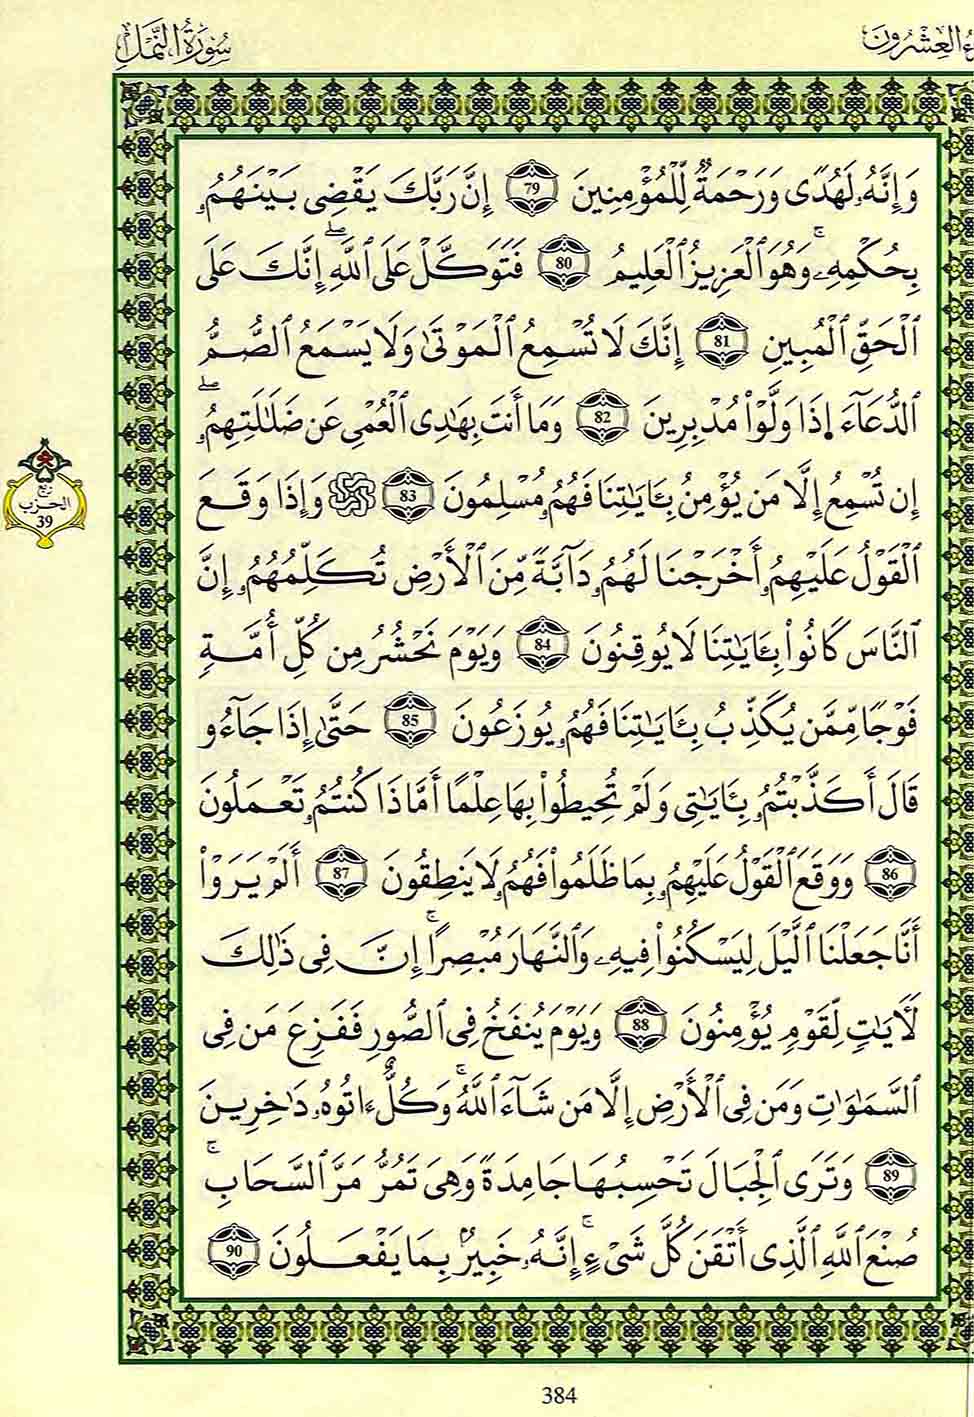 ءُ العِشْرُونَ
سُورَةُ النَّمْلِ
وَإِنَّهُۥ لَهُدًى وَرَحْمَةٌ لِّلْمُؤْمِنِينَ 79 إِنَّ رَبَّكَ يَقْضِى بَيْنَهُمُۥ
بِحُكْمِهِۦۚ وَهُوَ ٱلْعَزِيزُ ٱلْعَلِيمُ 80 فَتَوَكَّلْ عَلَى ٱللَّهِۖ إِنَّكَ عَلَى
ٱلْحَقِّ ٱلْمُبِينِ 81 إِنَّكَ لَا تُسْمِعُ ٱلْمَوْتَىٰ وَلَا يَسْمَعُ ٱلصُّمُّ
ٱلدُّعَآءَ إِذَا وَلَّوْاْ مُدْبِرِينَ 82 وَمَا أَنتَ بِهَٰدِى ٱلْعُمْىِ عَن ضَلَٰلَتِهِمُۥۖ
إِن تُسْمِعُ إِلَّا مَن يُؤْمِنُ بِـَٔايَٰتِنَا فَهُمُۥ مُسْلِمُونَ 83 وَإِذَا وَقَعَ
ربع
الحزب
39
ٱلْقَوْلُ عَلَيْهِمُۥ أَخْرَجْنَا لَهُمُۥ دَآبَّةً مِّنَ ٱلْأَرْضِ تُكَلِّمُهُمُۥ إِنَّ
ٱلنَّاسَ كَانُواْ بِـَٔايَٰتِنَا لَا يُوقِنُونَ 84 وَيَوْمَ نَحْشُرُ مِن كُلِّ أُمَّةٍ
فَوْجًا مِّمَّن يُكَذِّبُ بِـَٔايَٰتِنَا فَهُمُۥ يُوزَعُونَ 85 حَتَّىٰ إِذَا جَآءُو
قَالَ أَكَذَّبْتُمُۥ بِـَٔايَٰتِى وَلَمْ تُحِيطُواْ بِهَا عِلْمًا أَمَّاذَا كُنتُمُۥ تَعْمَلُونَ
86 وَوَقَعَ ٱلْقَوْلُ عَلَيْهِمُۥ بِمَا ظَلَمُواْ فَهُمُۥ لَا يَنطِقُونَ 87 أَلَمْ يَرَوْاْ
أَنَّا جَعَلْنَا ٱلَّيْلَ لِيَسْكُنُواْ فِيهِۦ وَٱلنَّهَارَ مُبْصِرًاۚ إِنَّ فِى ذَٰلِكَ
لَأٓيَٰتٍ لِّقَوْمٍ يُؤْمِنُونَ 88 وَيَوْمَ يُنفَخُ فِى ٱلصُّورِ فَفَزِعَ مَن فِى
ٱلسَّمَٰوَٰتِ وَمَن فِى ٱلْأَرْضِ إِلَّا مَن شَآءَ ٱللَّهُۚ وَكُلٌّ ءَاتُوهُۥ دَٰخِرِينَ
89 وَتَرَى ٱلْجِبَالَ تَحْسِبُهَا جَامِدَةً وَهِىَ تَمُرُّ مَرَّ ٱلسَّحَابِۚ
صُنْعَ ٱللَّهِ ٱلَّذِى أَتْقَنَ كُلَّ شَىْءٍۚ إِنَّهُۥ خَبِيرٌ بِمَا يَفْعَلُونَ 90
384